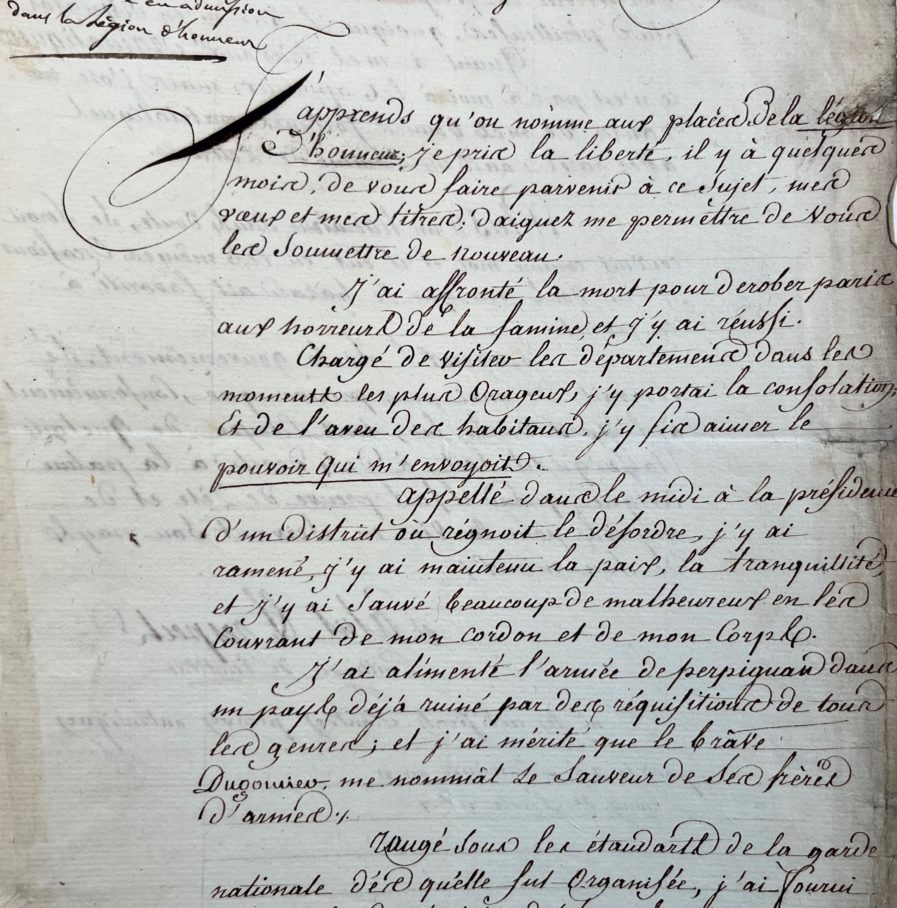 en admission
dans la Légion d'honneur
J'apprends qu'on nomme aux places de la légion
d'honneur; je pris la liberté, il y à quelques
mois, de vous faire parvenir à ce sujet, mes
vœux et mes titres; daignez me permettre de vous
les soumettre de nouveau.
J'ai affronté la mort pour derober paris
aux horreurs de la famine, et j'y ai réussi.
Chargé de visiter les départemens dans les
moments les plus orageux, j'y portai la consolation;
Et de l'aveu des habitans, j'y fis aimer le
pouvoir qui m'envoyoit.
appellé dans le midi à la présidence
d'un district où régnoit le désordre, j'y ai
ramené, j'y ai maintenu la paix, la tranquillité,
et j'y ai sauvé beaucoup de malheureux en les
couvrant de mon cordon et de mon Corps.
J'ai alimenté l'armée de perpignan dans
un pays déjà ruiné par des réquisitions de tous
les genres; et j'ai mérité que le brâve
Dugomier, me nommât le sauveur de ses frères
d'armes.
rangé sous les étandarts de la garde
nationale dès qu'elle fut organisée, j'ai fourni